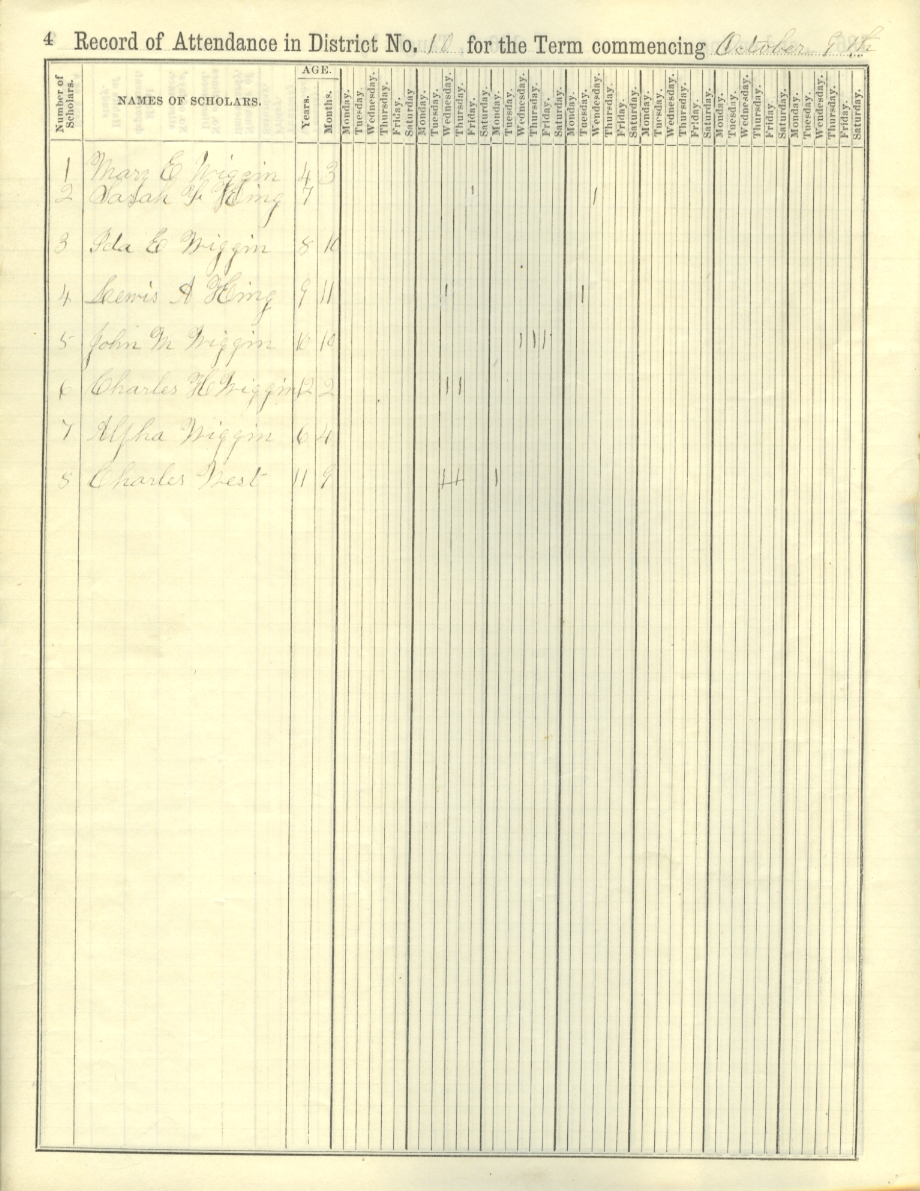 4 Record of Attendance in District No. 10 for the Term commencing October 9th
Number of Scholars. NAMES OF SCHOLARS. AGE. Years. Months. Monday. Tuesday. Wednesday. Thursday. Friday. Saturday Monday. Tuesday. Wednesday. Thursday. Friday. Saturday Monday. Tuesday. Wednesday. Thursday. Friday. Saturday. Monday. Tuesday. Wendesday. Thursday. Friday Saturday. Monday. Tuesday. Wednesday. Thursday. Friday. Saturday. Monday. Tuesday. Wednesday. Thursday. Friday. Saturday. Monday. Tuesday. Wednesday. Thursday. Friday. Saturday.
1 Mary E Wiggin 4 3
2 Sarah F King 7
3 Ida E Wiggin 8 10
4 Lewis A King 9 11
5 John M Wiggin 10 10
6 Charles H Wiggin 12 2
7 Alpha Wiggin 6 4
8 Charles West 11 9